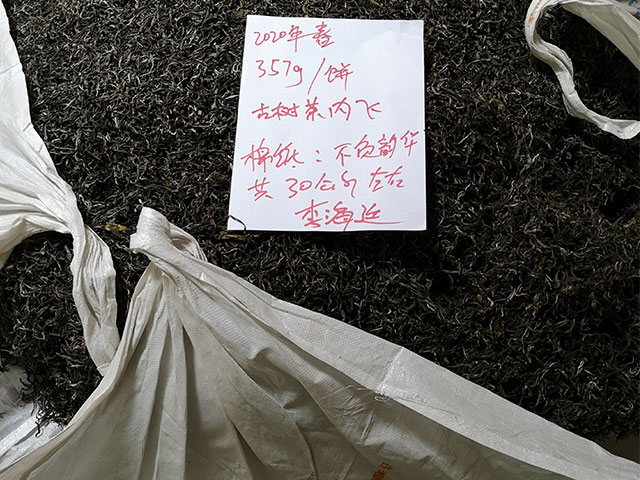 2020年春
357g/饼
古树茶内飞
棉纸：不负韶华
共30公斤左右
李海近